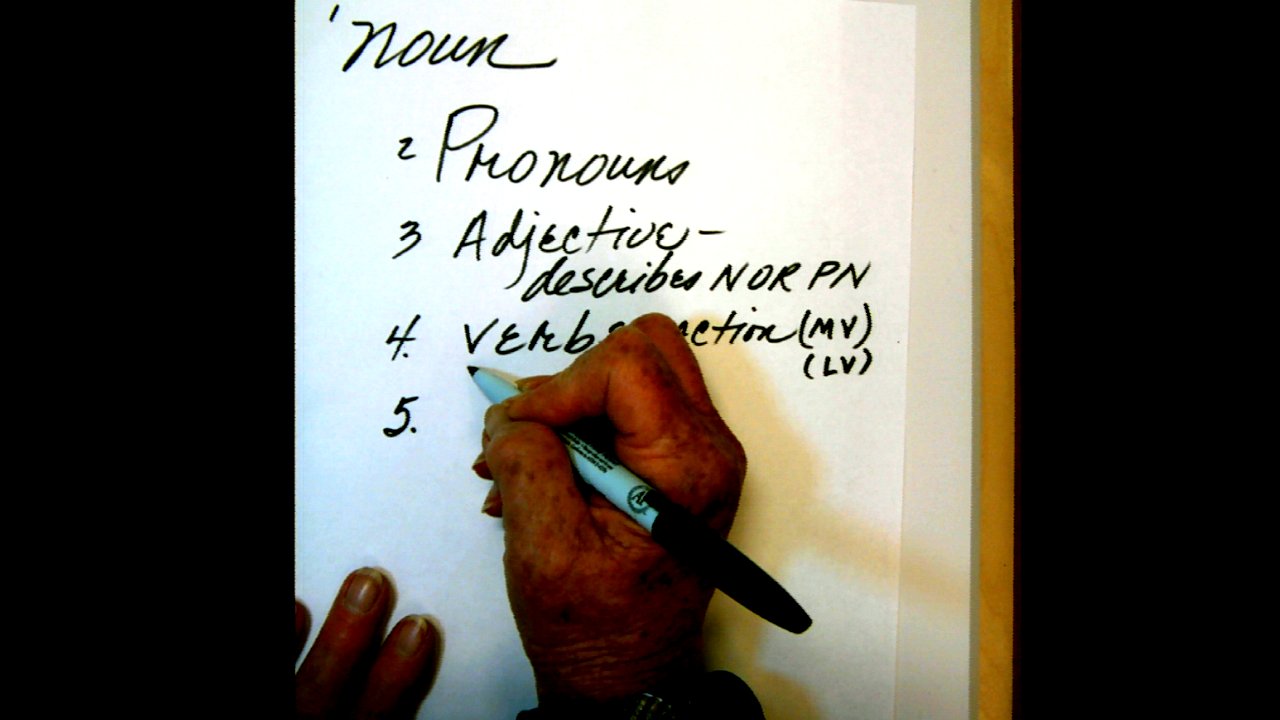 1 Noun
2 Pronouns
3 Adjective-
describes N OR PN
4. Verbs action (MV)
(LV)
5.